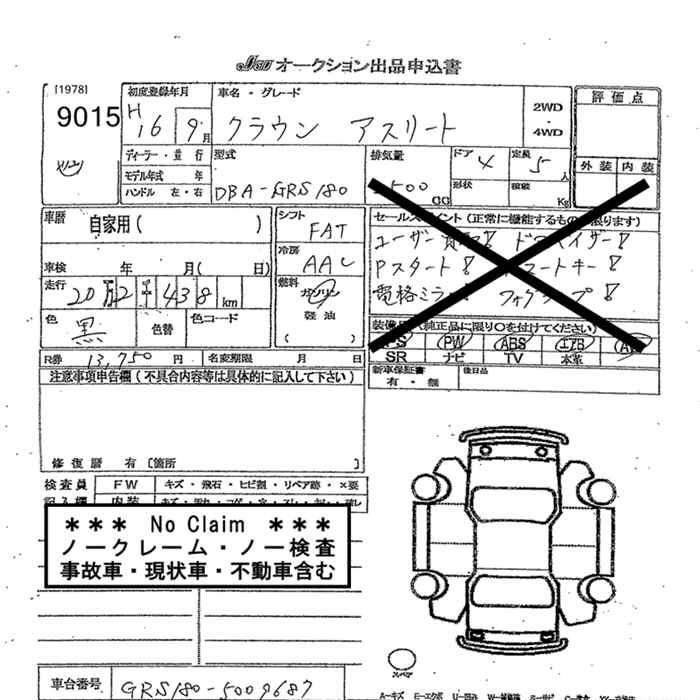 JAA オークション出品申込書
[1978]
9015
初度登録年月
H 16 9月
車名・グレード
クラウン アスリート
2WD
・
4WD
評価点
外装 内装
ディーラー・並行
モデル年式 年
ハンドル 左・右
型式
DBA-GRS180
排気量
500 CC
ドア 4
定員 5人
形状
積載 Kg
車歴
自家用( )
シフト
FAT
冷房
AAC
セールスポイント(正常に機能するものに限ります)
Pスタート!
車検 年 月( 日)
走行
20万2千438km
燃料
ガソリン
軽油
( )
色
黒
色替
色コード
装備品(純正品に限り○を付けてください)
PS PW ABS エアB
SR ナビ TV 本革
R券 13,750円
名変期限 月 日
新車保証書
有・無
後日品
注意事項申告欄(不具合内容等は具体的に記入して下さい)
修復歴 有〔箇所
検査員
記入欄
FW キズ・飛石・ヒビ割・リペア跡・×要
内装
*** No Claim ***
ノークレーム・ノー検査
事故車・現状車・不動車含む
スペア
車台番号
GRS180-5009687